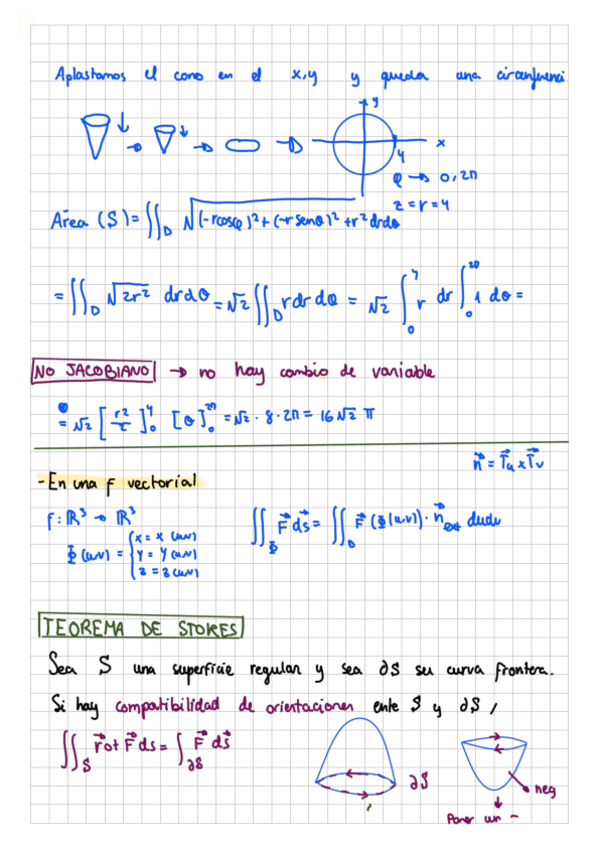 Aplastamos el cono en el x,y y queda una circunferenci
y
x
4
φ → 0, 2π
z = r = 4
Área (S) = ∬_D √((-r cosφ)² + (-r senθ)² + r² drdθ
= ∬_D √(2r²) drdθ = √2 ∬_D r dr dθ = √2 ∫_0^4 r dr ∫_0^{2π} 1 dθ =
NO JACOBIANO → no hay cambio de variable
= √2 [r²/2]_0^4 [θ]_0^{2π} = √2 · 8 · 2π = 16√2 π
n⃗ = T⃗u x T⃗v
- En una f vectorial
f: ℝ³ → ℝ³
Φ(u,v) = { x = x (u,v)
y = y (u,v)
z = z (u,v)
∬_Φ F⃗ ds⃗ = ∬_D F⃗ (Φ(u,v)) · n⃗ext dudv
TEOREMA DE STOKES
Sea S una superficie regular y sea ∂S su curva frontera.
Si hay compatibilidad de orientaciones ente S y ∂S,
∬_S r⃗ot F⃗ ds = ∫_∂S F⃗ ds⃗
∂S
neg
Poner un -